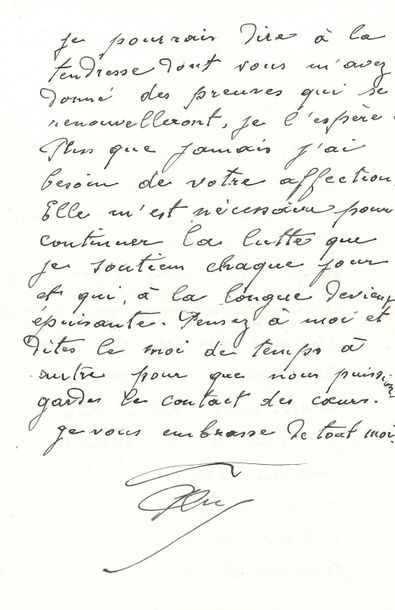 je pourrais dire à la
tendresse dont vous m'avez
donné des preuves qui se
renouvelleront, je l'espère.
Plus que jamais j'ai
besoin de votre affection.
Elle m'est nécessaire pour
continuer la lutte que
je soutiens chaque jour
et qui, à la longue devient
épuisante. Pensez à moi et
dites le moi de temps à
autre pour que nous puissions
garder le contact des cœurs.
je vous embrasse de tout moi.